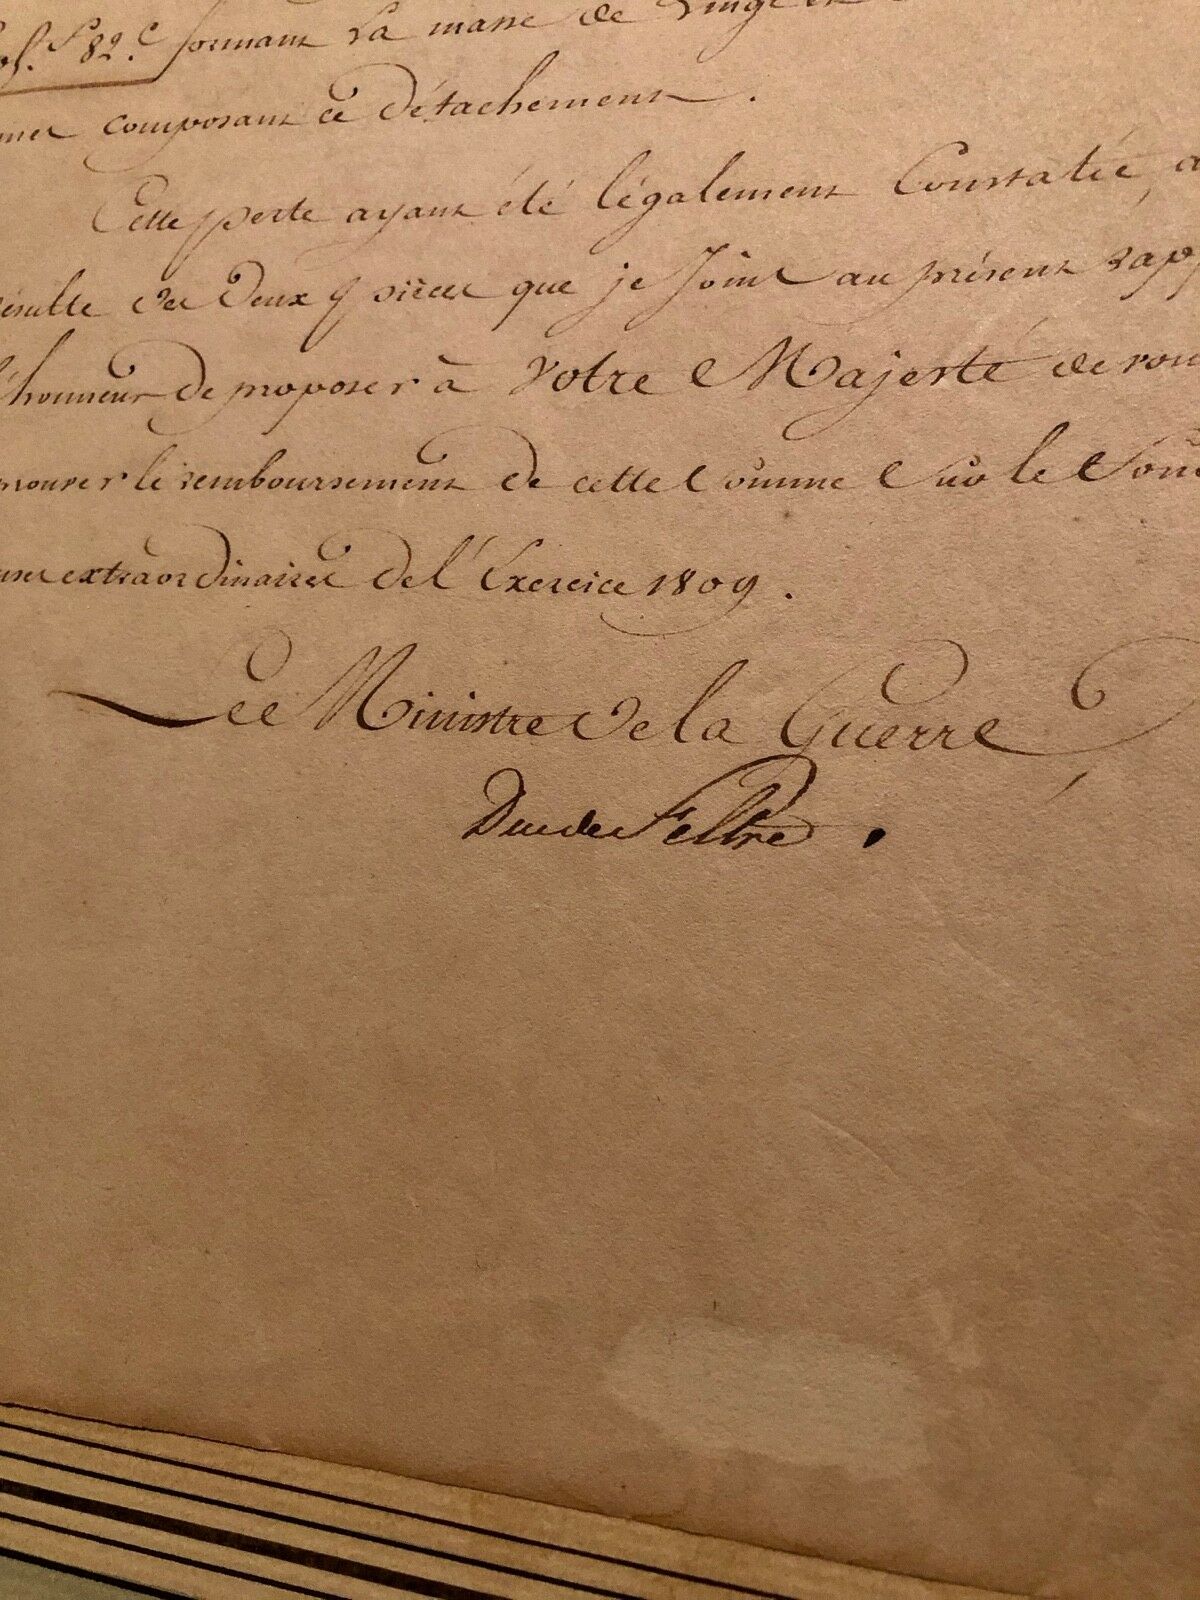 82.c formant la masse de vingt et
composant ce Détachement.
Cette perte ayant été légalement Constatée,
résulte des Deux pièces que je Joins au présent rapp
l'honneur De proposer à Votre Majesté de vou
le remboursement de cette Somme Sur le Fond
extraordinaires de l'Exercice 1809.
Le Ministre de la Guerre,
Duc de Feltre.